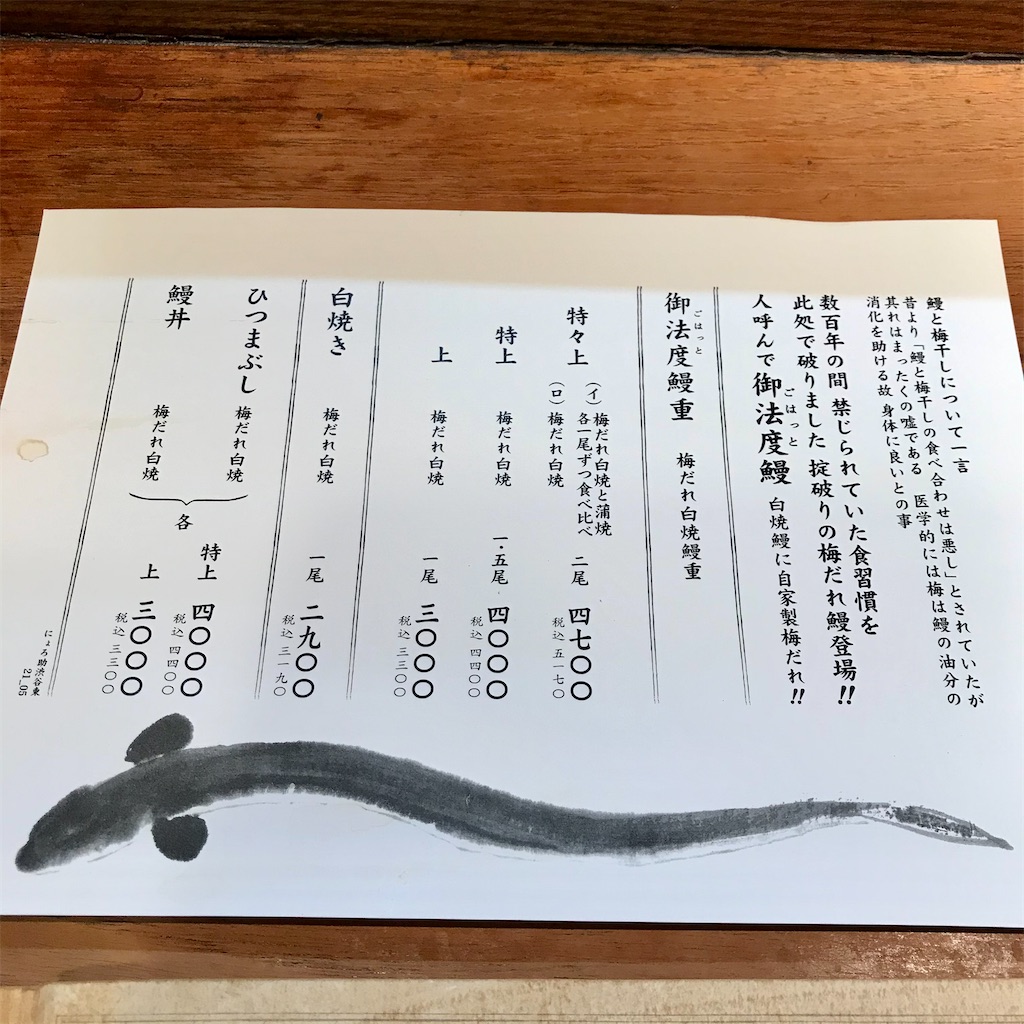 鰻と梅干しについて一言
昔より「鰻と梅干しの食べ合わせは悪し」とされていたが
其れはまったくの嘘である 医学的には梅は鰻の油分の
消化を助ける故 身体に良いとの事
数百年の間 禁じられていた食習慣を
此処で破りました 掟破りの梅だれ鰻登場!!
人呼んで御法度鰻 白焼鰻に自家製梅だれ!!
ごはっと
御法度鰻重 梅だれ白焼鰻重
ごはっと
特々上 (イ)梅だれ白焼と蒲焼
各一尾ずつ食べ比べ
(ロ)梅だれ白焼
二尾 四七〇〇
税込 五一七〇
特上 梅だれ白焼 一・五尾 四〇〇〇
税込 四四〇〇
上 梅だれ白焼 一尾 三〇〇〇
税込 三三〇〇
白焼き 梅だれ白焼 一尾 二九〇〇
税込 三一九〇
ひつまぶし 梅だれ白焼
鰻丼 梅だれ白焼
各
特上 四〇〇〇
税込 四四〇〇
上 三〇〇〇
税込 三三〇〇
にょろ助渋谷東
21_05